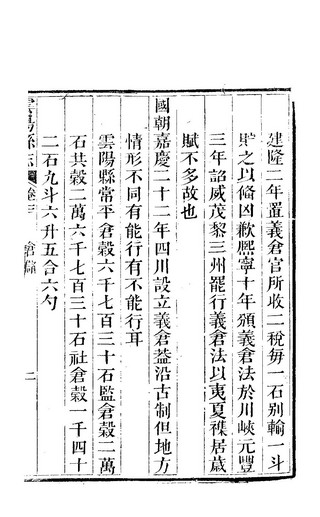 建隆二年置義倉官所收二稅每一石別輸一斗
貯之以備凶歉熙寧十年頒義倉法於川峽元豐
三年詔威茂黎三州罷行義倉法以夷夏襍居歲
賦不多故也
國朝嘉慶二十二年四川設立義倉葢沿古制但地方
情形不同有能行有不能行耳
雲陽縣常平倉穀六千七百三十石監倉穀二萬
石共穀二萬六千七百三十石社倉穀一千四十
二石九斗六升五合六勺
雲陽縣志 卷三 倉儲 二